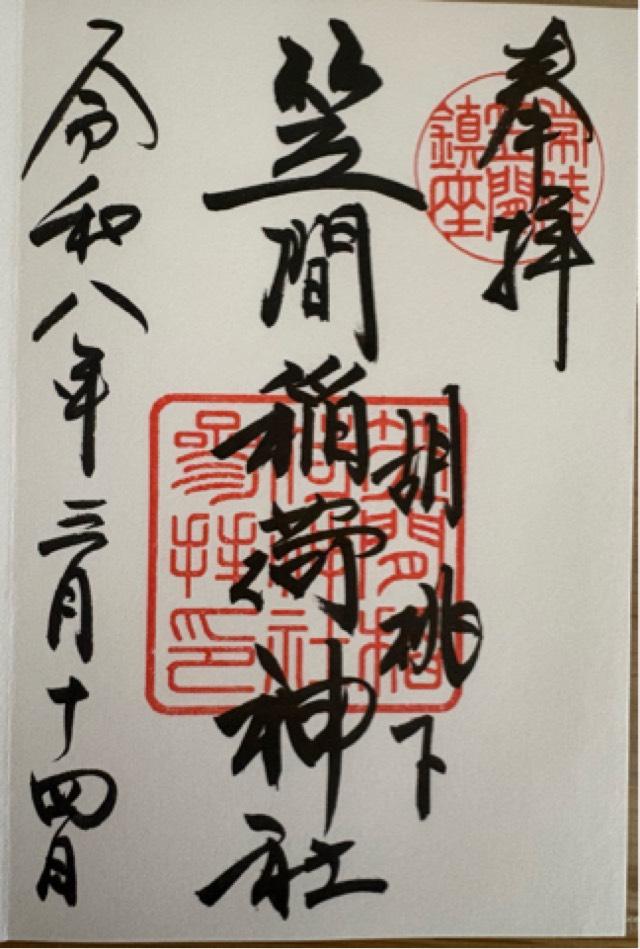 奉拝
常陸
笠間
鎮座
胡桃下
笠間稲荷神社
笠間稲
荷神社
参拝印
令和八年三月十四日